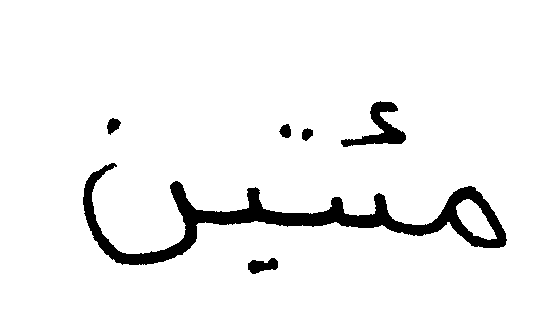 مئتين